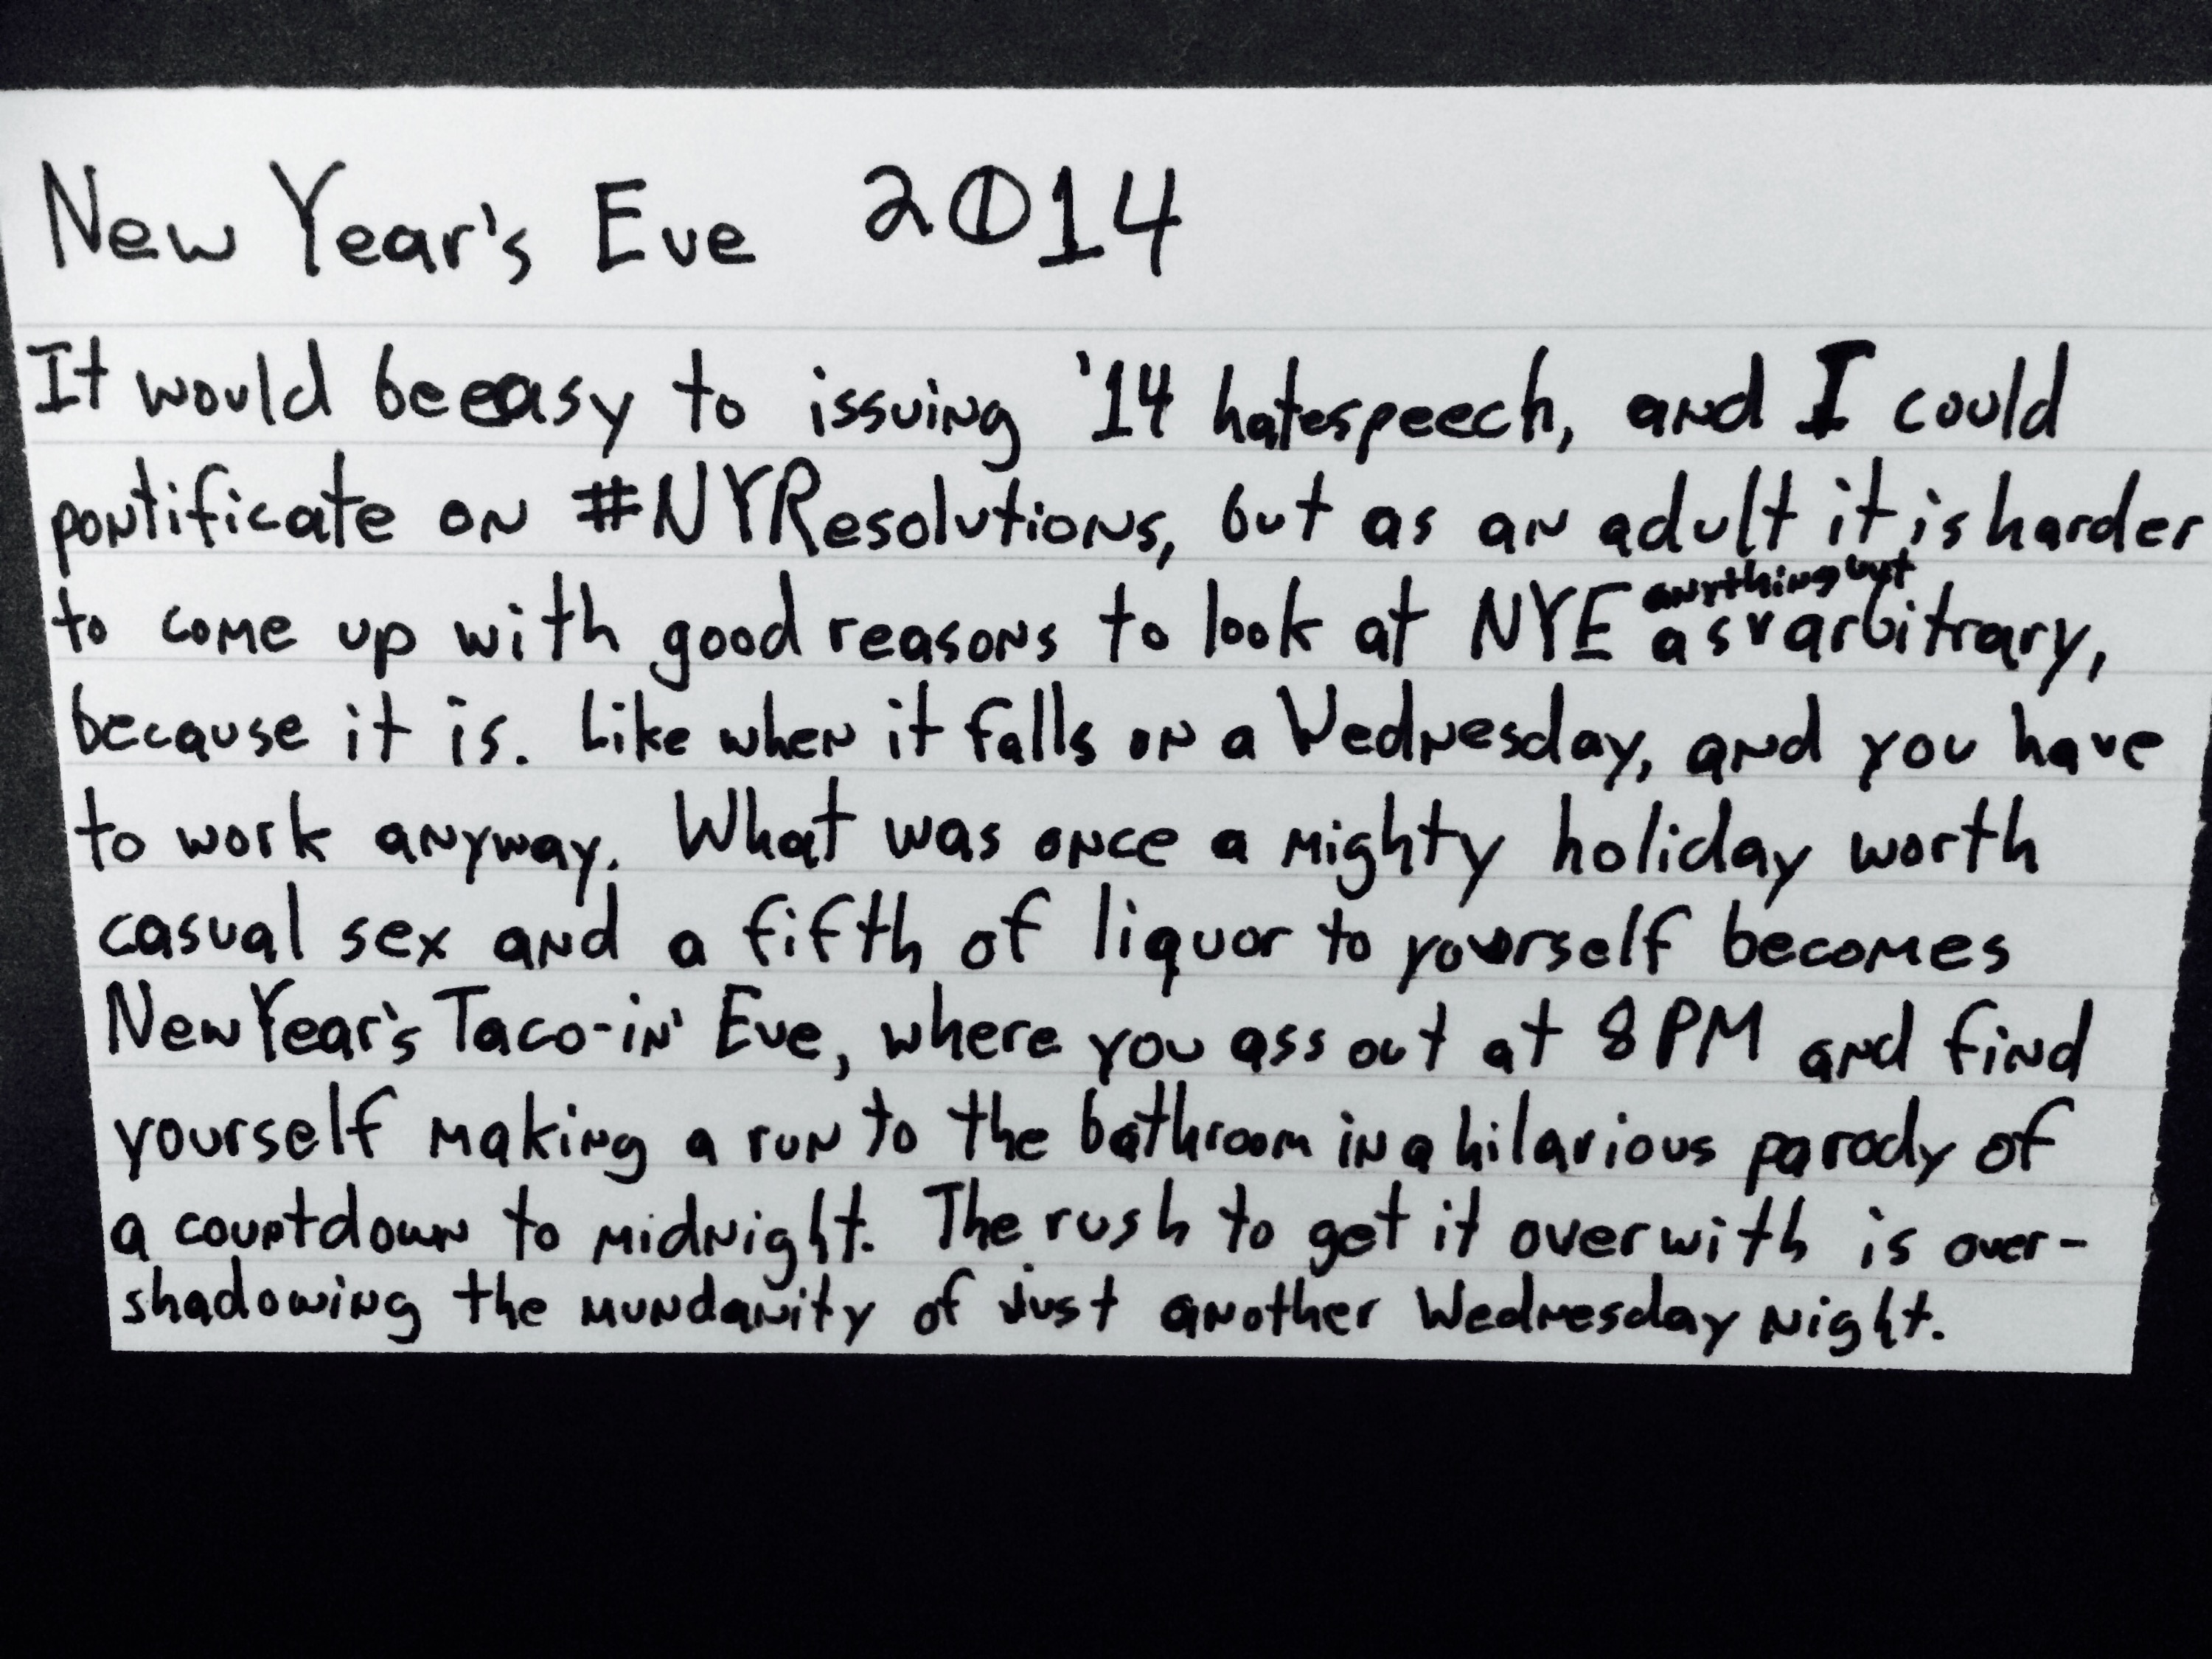 New Year's Eve 2014
It would be easy to issuing '14 hatespeech, and I could
pontificate on #NYResolutions, but as an adult it is harder
to come up with good reasons to look at NYE as anything but arbitrary,
because it is. Like when it falls on a Wednesday, and you have
to work anyway. What was once a mighty holiday worth
casual sex and a fifth of liquor to yourself becomes
New Year's Taco-in' Eve, where you ass out at 8 PM and find
yourself making a run to the bathroom in a hilarious parody of
a countdown to midnight. The rush to get it over with is over-
shadowing the mundanity of just another Wednesday night.